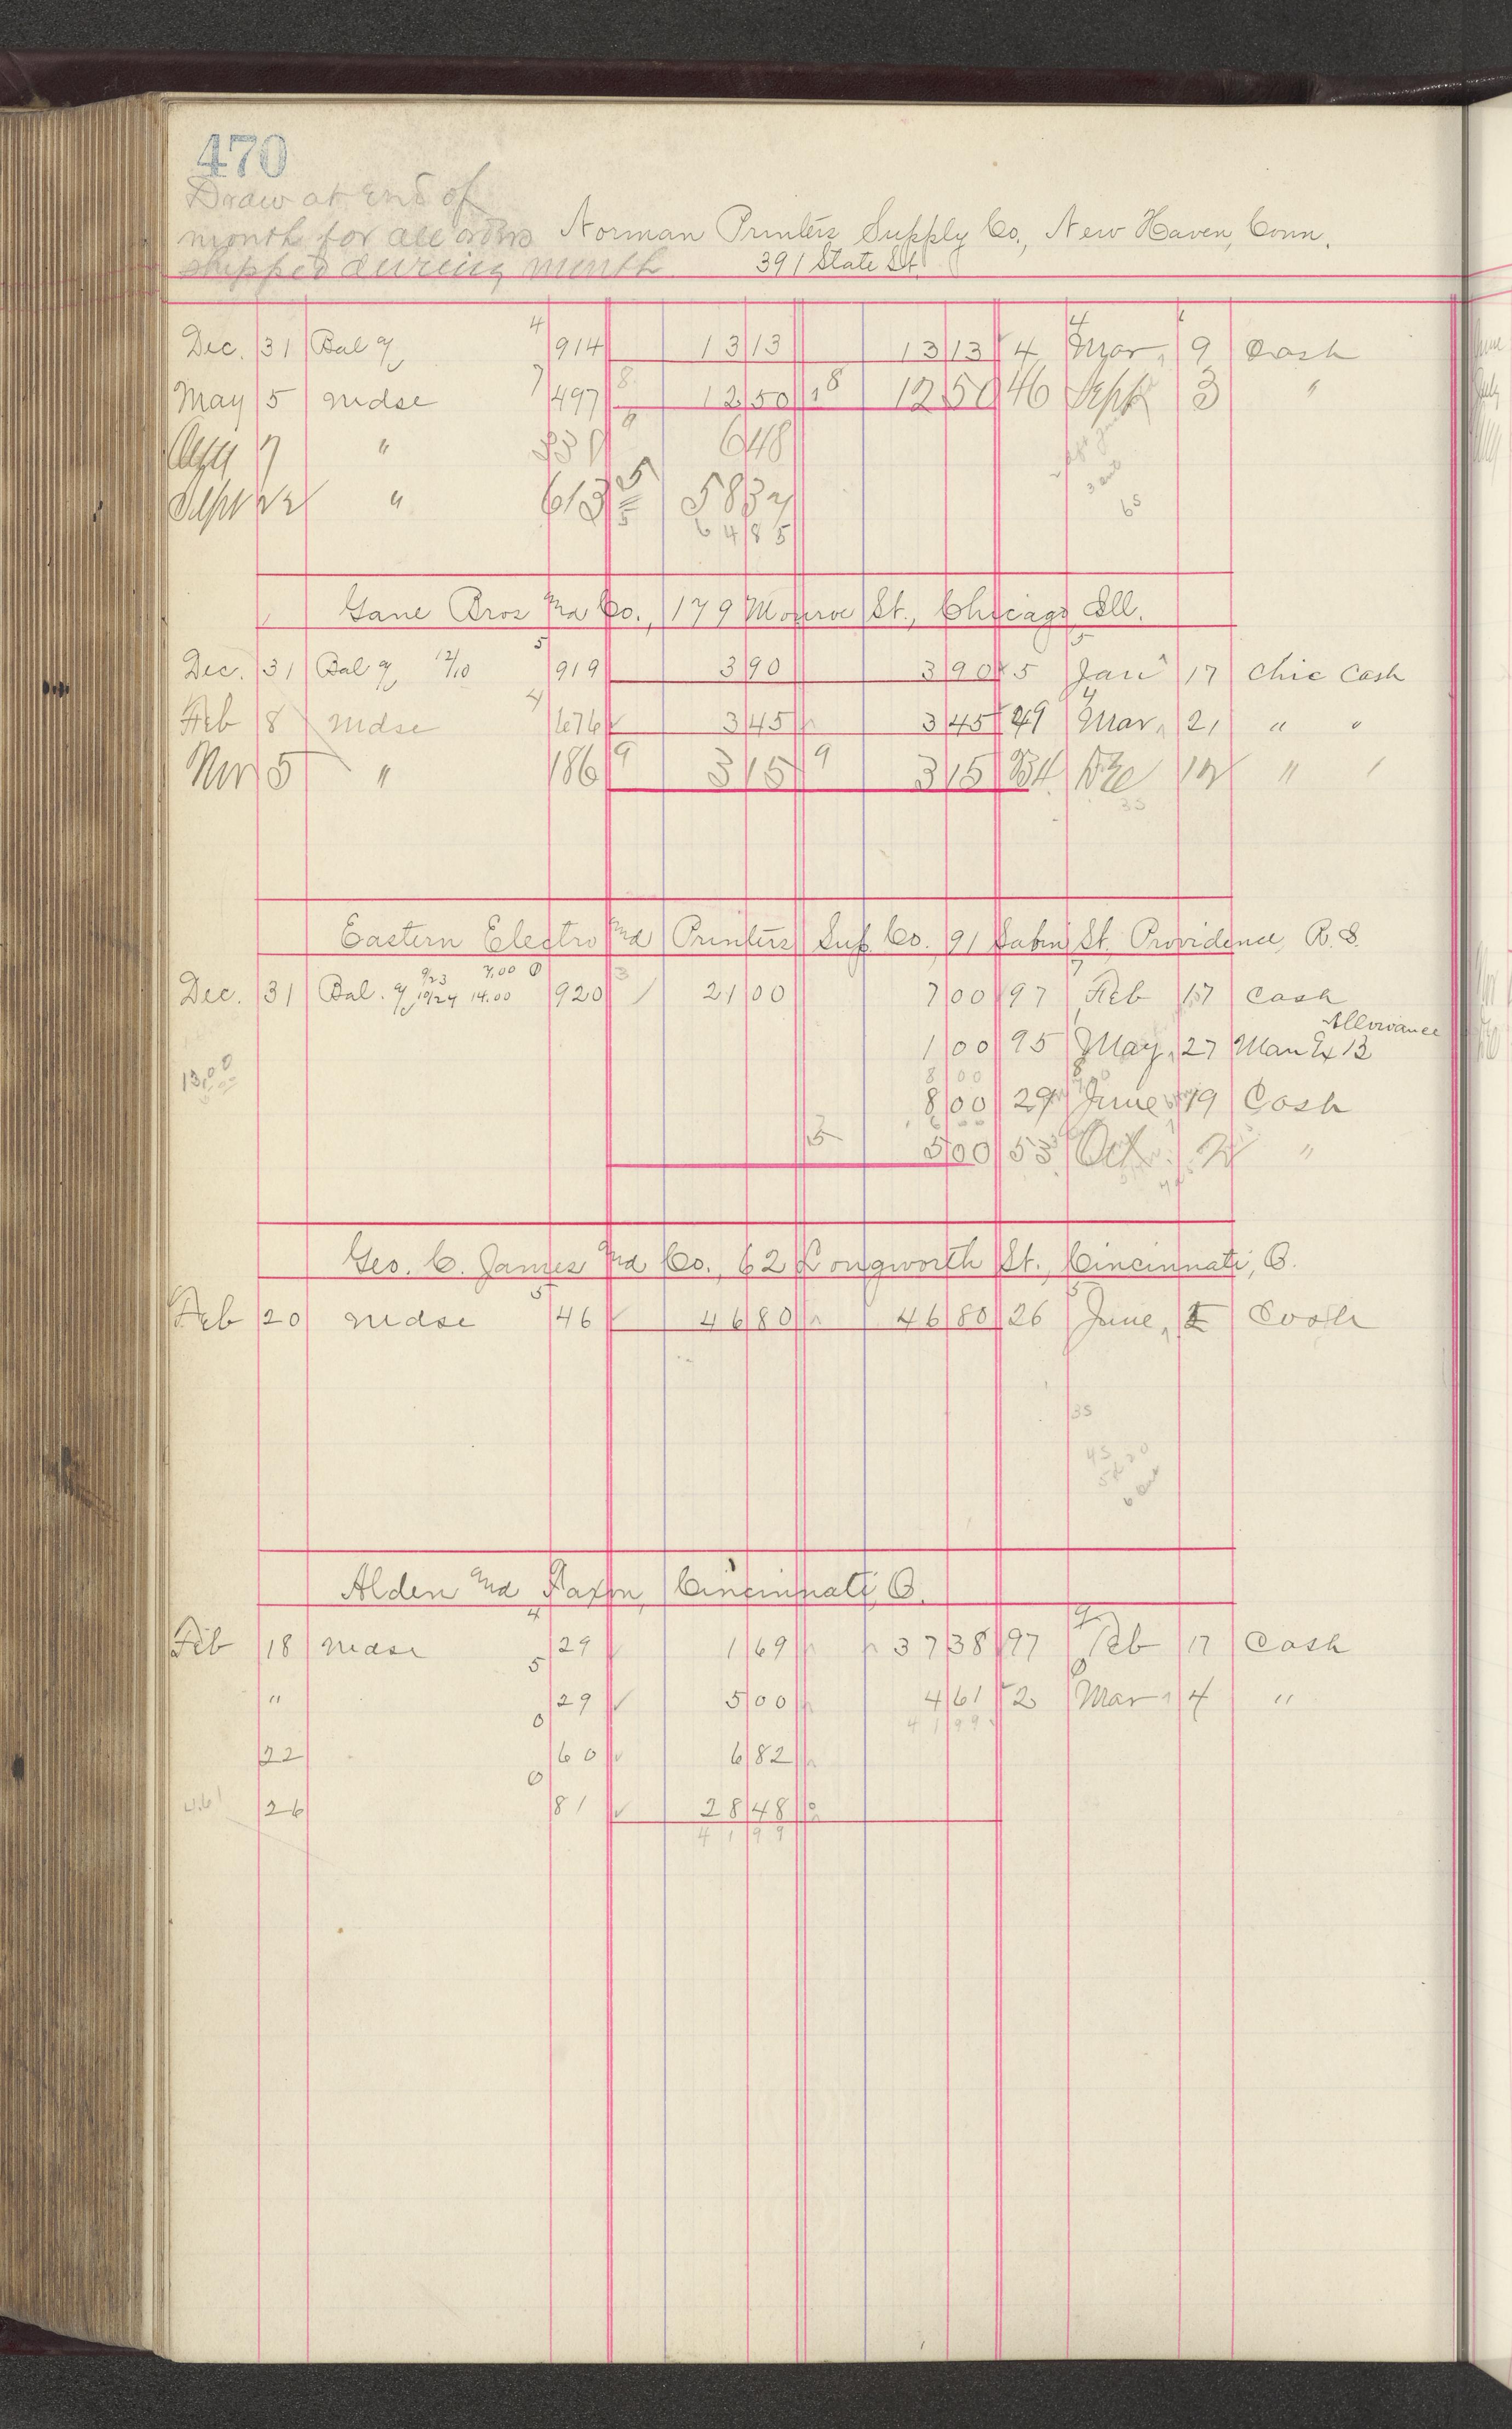 470
Draw at end of
month for all orders Norman Printers Supply Co., New Haven, Conn.
shipped during month 391 State St.
Dec. 31 Bal 4 914 13 13 13 13 4 4 Mar. 9 Cash
May 5 mdse 7 497 8 12 50 8 12 50 46 Sept 3 "
Aug 7 " 9 6 48
Sept 22 " 613 5 58 37
64 85
Gane Bros and Co., 179 Monroe St., Chicago Ill.
Dec. 31 Bal 12/10 5 919 3 90 3 90 5 5 Jan 17 Chic Cash
Feb 8 mdse 4 676 3 45 3 45 49 4 Mar. 21 " "
Nov 5 " 186 9 3 15 9 3 15 Dec 12 "
35
Eastern Electro and Printers Sup. Co. 91 Sabin St. Providence, R. I.
9/23 7.00
Dec. 31 Bal. 10/24 14.00 920 21 00 7 00 97 7 Feb 17 Cash
Allowance
1 00 95 May 27 Man Ex 13
13.00 8 00
8 00 29 June 19 Cash
5 5 00 53 Oct "
Geo. C. James and Co., 62 Longworth St., Cincinnati, O.
Feb 20 mdse 5 46 46 80 46 80 26 5 June, Cash
35
45
Alden and Faxon, Cincinnati O.
Feb 18 mdse 4 29 1 69 37 38 97 Feb 17 Cash
" 5 29 5 00 4 61 2 Mar 4 "
41 99
22 0 60 6 82
4.61 26 0 81 28 48
41 99